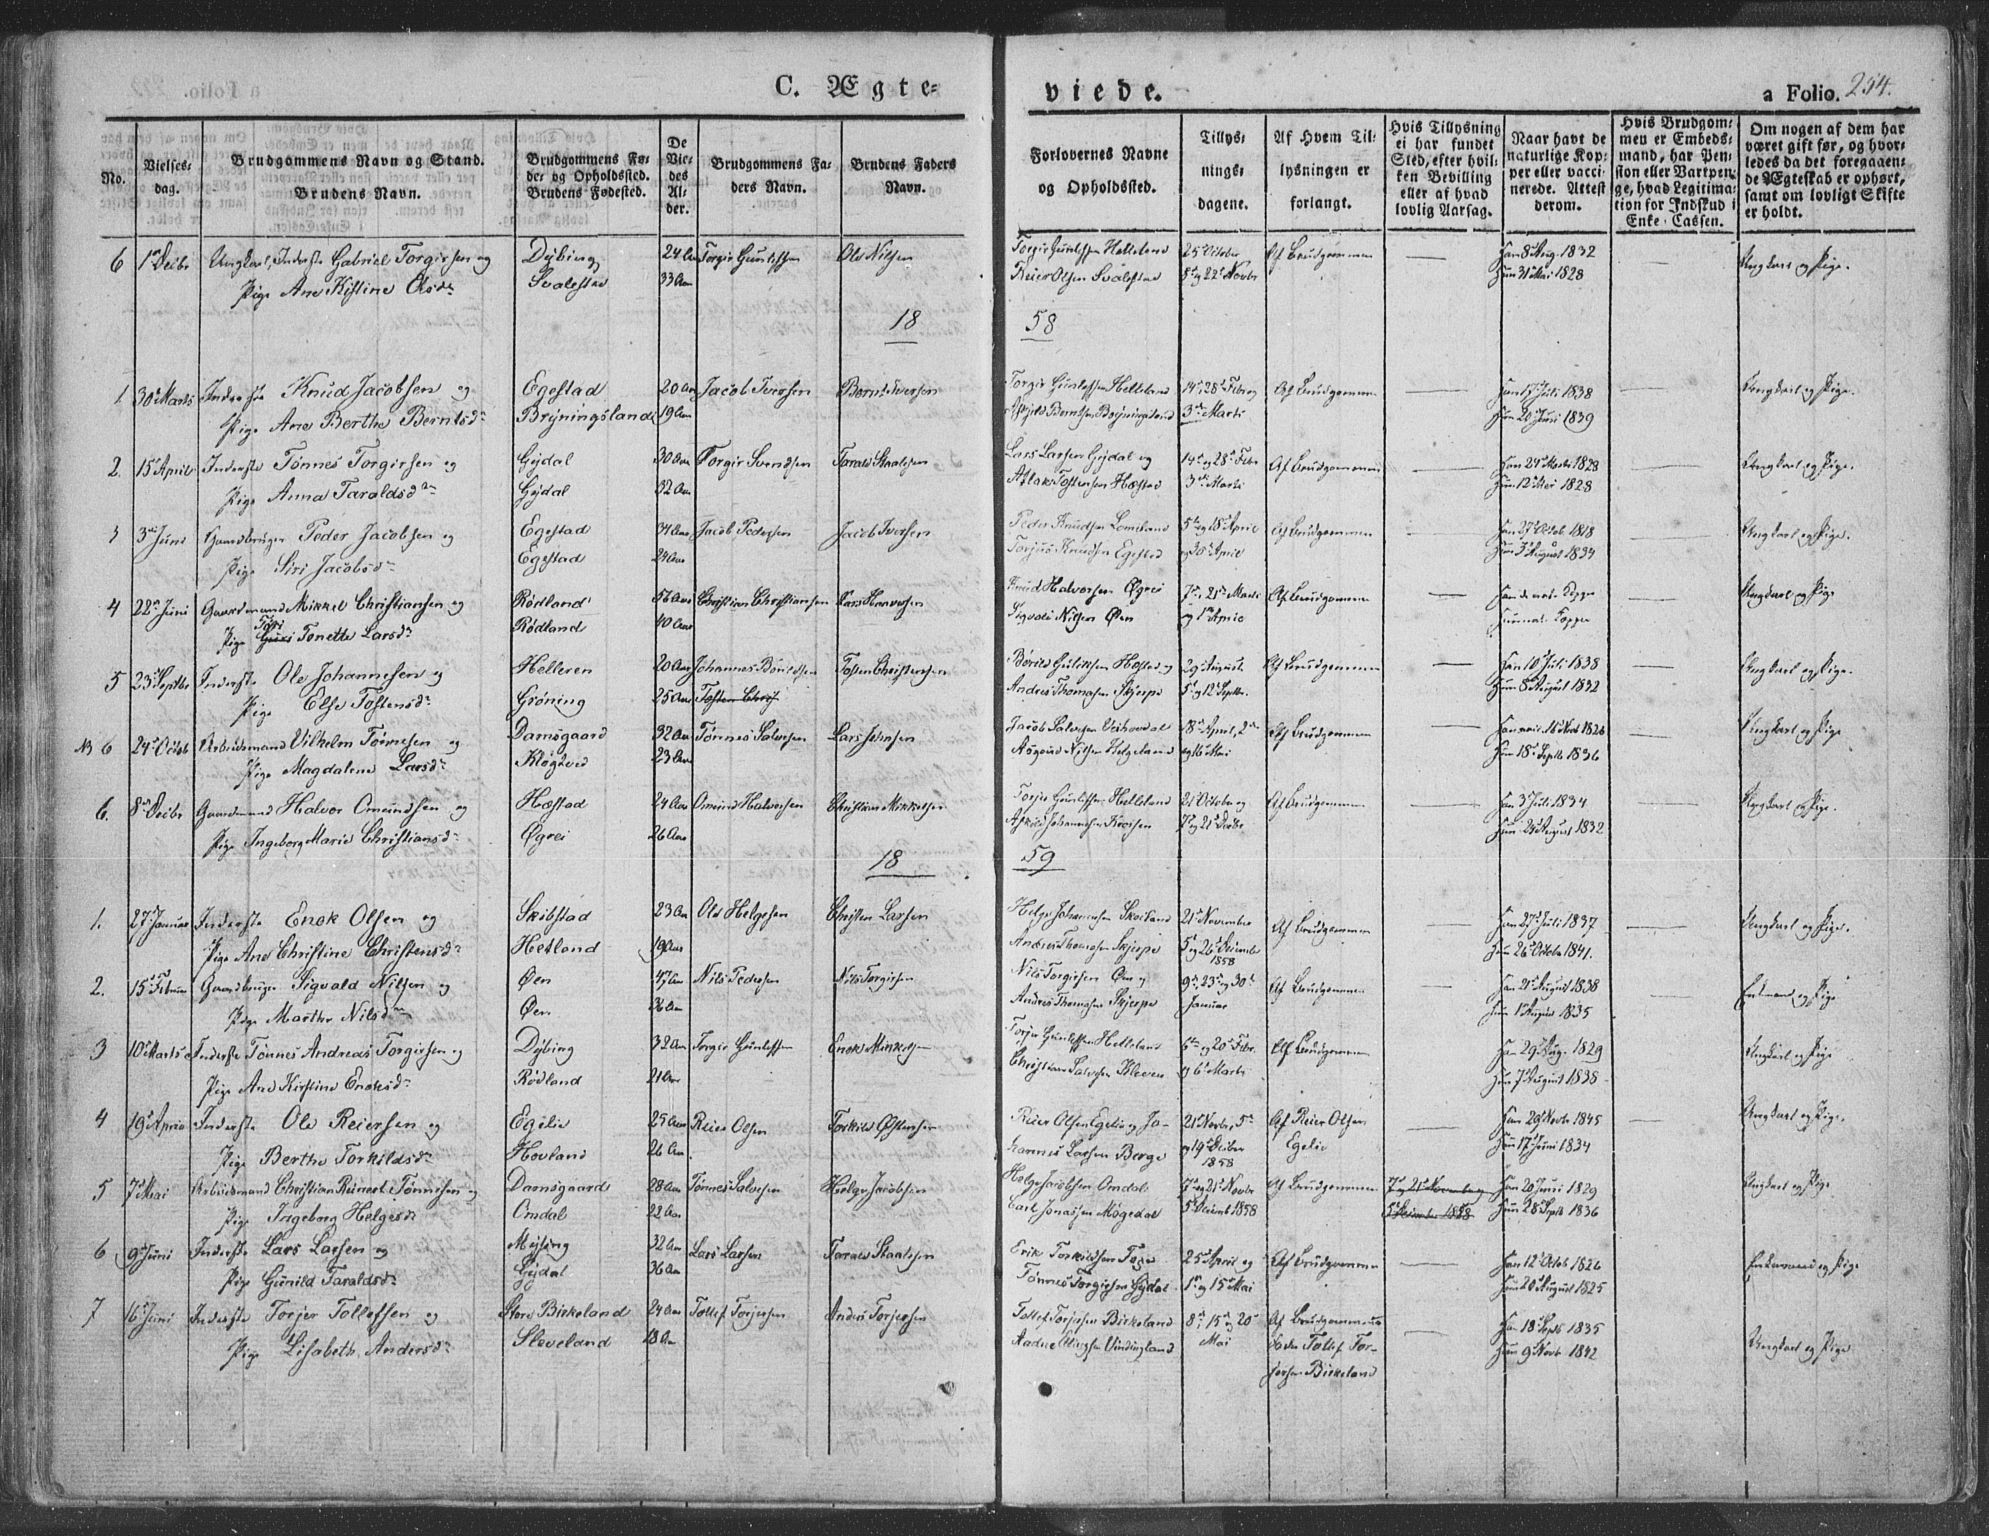 C. Ægte-
viede.
a Folio. 254.
No.
Vielses-
dag.
Brudgommens Navn og Stand.
Brudens Navn.
Brudgommens Fø-
de- og Opholdssted.
Brudens Fødested.
De
Vie-
des
Al-
der.
Brudgommens Fa-
ders Navn.
Brudens Faders
Navn.
Forlovernes Navne
og Opholdssted.
Tillys-
nings-
dagene.
Af Hvem Til-
lysningen er
forlangt.
Hvis Tillysning
ei har fundet
Sted, efter hvil-
ken Bevilling
eller af hvad
lovlig Aarsag.
Naar havt de
naturlige Kop-
per eller vacci-
nerede. Attest
derom.
Hvis Brudgom-
men er Embeds-
mand, har Pen-
sion eller Vartpen-
ge, hvad Legitima-
tion for Indskud i
Enke-Cassen.
Om nogen af dem har
været gift før, og hvor-
ledes da det foregaaen-
de Ægteskab er ophørt,
samt om lovligt Skifte
er holdt.
6 1 Decbr Ungkarl, Inderste Gabriel Torgirsen og Dybing 24 Aar Torgir Gunlefsen Ole Nilsen Torgir Gunlefsen Helleland 25 October Af Brudgommen — Han 8 Aug. 1832 Ungkarl og Pige.
Pige Ane Kistine Olsdr Svalestad 33 Aar Reier Olsen Svalestad 8 og 22 Novbr Hun 31 Mai 1828
18 58
1 30 Marts Inderste Knud Jacobsen og Egestad 20 Aar Jacob Iversen Bernt Iversen Torgir Gunlefsen Helleland 14, 28 Febr og Af Brudgommen — Han 17 Juli 1838 — Ungkarl og Pige.
Pige Ane Berthe Berntsdr Bryningsland 19 Aar Berntsen Bryningsland 3 Marts Hun 20 Juni 1839
2. 15 April Inderste Tønnes Torgirsen og Gydal 30 Aar Torgir Svendsen Tarald Staalesen Lars Larsen Gydal og 14 og 28 Febr Af Brudgommen — Han 24 Marts 1828 Ungkarl og Pige.
Pige Anna Taraldsdr Gydal 32 Aar Atlak Tostensen Hæstad 3 Marts Hun 12 Mai 1828
3 3 Juni Gaardbruger Peder Jacobsen og Egestad 34 Aar Jacob Pedersen Jacob Iversen Peder Knudsen Lomeland 5 og 18 April Af Brudgommen — Han 27 Octob 1818 Ungkarl og Pige.
Pige Siri Jacobsdr Egestad 24 Aar Torjus Knudsen Egestad og 30 April Hun 3 August 1834
4 22 Juni Gaardmand Mikkel Christiansen og Rødland 56 Aar Christian Christiansen Lars Knud Halvorsen Øgrei 7, 21 Marts Af Brudgommen — Ungkarl og Pige
Pige Tonette Larsdr Rødland 40 Aar Sigvald Nilsen Øen og 1 April Hun nat. Kopper
5 23 Septbr Inderste Ole Johannesen og Helleren 20 Aar Johannes Tosten Christensen Hæstad og 29 August Af Brudgommen — Han 10 Juli 1838 Ungkarl og Pige.
Pige Else Tostensdr Grøning 25 Aar Tosten Andreas Thomasen Skjerpe 5 og 12 Septbr. Hun 8 August 1832
6 24 Octob Arbeidsmand Vilhelm Tønnesen og Damsgaard 32 Aar Tønnes Salvesen Lars Jensen Jacob Salvesen 18 April, 2 Af Brudgommen — Han 16 Novb 1826 Ungkarl og Pige
Pige Magdalene Larsdr Kløgtved 23 Aar Nilsen Helgeland og 16 Mai Hun 18 Septb 1836
6. 8 Decbr Gaardmand Halvor Omundsen og Hæstad 24 Aar Omund Halvorsen Christian Mikkelsen Torgir Gunlefsen Helleland 21 October og Af Brudgommen — Han 3 Juli 1834 Ungkarl og Pige.
Pige Ingeborg Marie Christiansdr Øgrei 26 Aar Johannesen 7 og 21 Hun 24 August 1832
18 59
1. 27 Januar Inderste Enok Olsen og Skibstad 23 Aar Ole Helgesen Christen Larsen Helge Johannesen Skotland 21 November Af Brudgommen — Han 27 Juli 1837 — Ungkarl og Pige.
Pige Ane Christine Christensdr Hetland 19 Aar Andreas Thomasen Skjerpe 5 og 26 Decembr 1858 Hun 26 Octobr 1841.
2. 15 Februar Gaardbruger Sigvald Nilsen og Øen 47 Aar Nils Pedersen Nils Torgirsen Nils Torgirsen Øen og 9, 23 og 30 Af Brudgommen — Han 21 August 1838 — Enkemand og Pige
Pige Marthe Nilsdr Øen 36 Aar Andreas Thomasen Skjerpe Januar Hun 1 August 1835
3 10 Marts Inderste Tønnes Andreas Torgirsen og Dybing 32 Aar Torgir Gunlefsen Enok Mikkelsen Torgir Gunlefsen Helleland 6 og 20 Febr. Af Brudgommen — Han 29 Aug. 1829 Ungkarl og Pige
Pige Ane Kirstine Enoksdr Rødland 21 Aar Christian Salvesen Kleven og 6 Marts Hun 7 August 1838
4 19 April Inderste Ole Reiersen og Egelie 25 Aar Reier Olsen Torkild Østensen Reier Olsen Egeli og Jo- 21 Novbr, 5 Af Reier Olsen — Han 29 Novbr 1845 — Ungkarl og Pige.
Pige Berthe Torkildsdr Hovland 26 Aar hannes Larsen Berge og 19 Decbr 1858 Egelie Hun 17 Juni 1834
5 7 Mai Arbeidsmand Christian Reinert Tønnesen og Damsgaard 28 Aar Tønnes Salvesen Helge Jacobsen Helge Jacobsen Omdal 7 og 21 Novbr Af Brudgommen 7 og 21 November Han 20 Juni 1829 Ungkarl og Pige
Pige Ingeborg Helgesdr Omdal 22 Aar Carl Jonassen Mogedal 5 Decembr 1858 5 December 1858 Hun 28 Septb 1836
6 9 Juni Inderste Lars Larsen og Mysing 32 Aar Lars Larsen Tarald Staalesen Erik Torkildsen Toge 25 April og Af Brudgommen — Han 12 Octob 1826 Enkemand og Pige
Pige Gunild Taraldsdr Gydal 36 Aar Tønnes Torgirsen Gydal 1 og 15 Mai Hun 20 August 1825
7 16 Juni Inderste Torjer Tollefsen og Store Birkeland 24 Aar Tollef Torjersen Anders Torjersen Tollef Torjersen Birkeland 8, 15 og 20 Af Brudgommens — Han 18 Septb 1835 Ungkarl og Pige
Pige Lisabeth Andersdr Sleveland 18 Aar Aadne Vindingland Mai Fader Tollef Tor- Hun 9 Novb 1842
jersen Birkeland